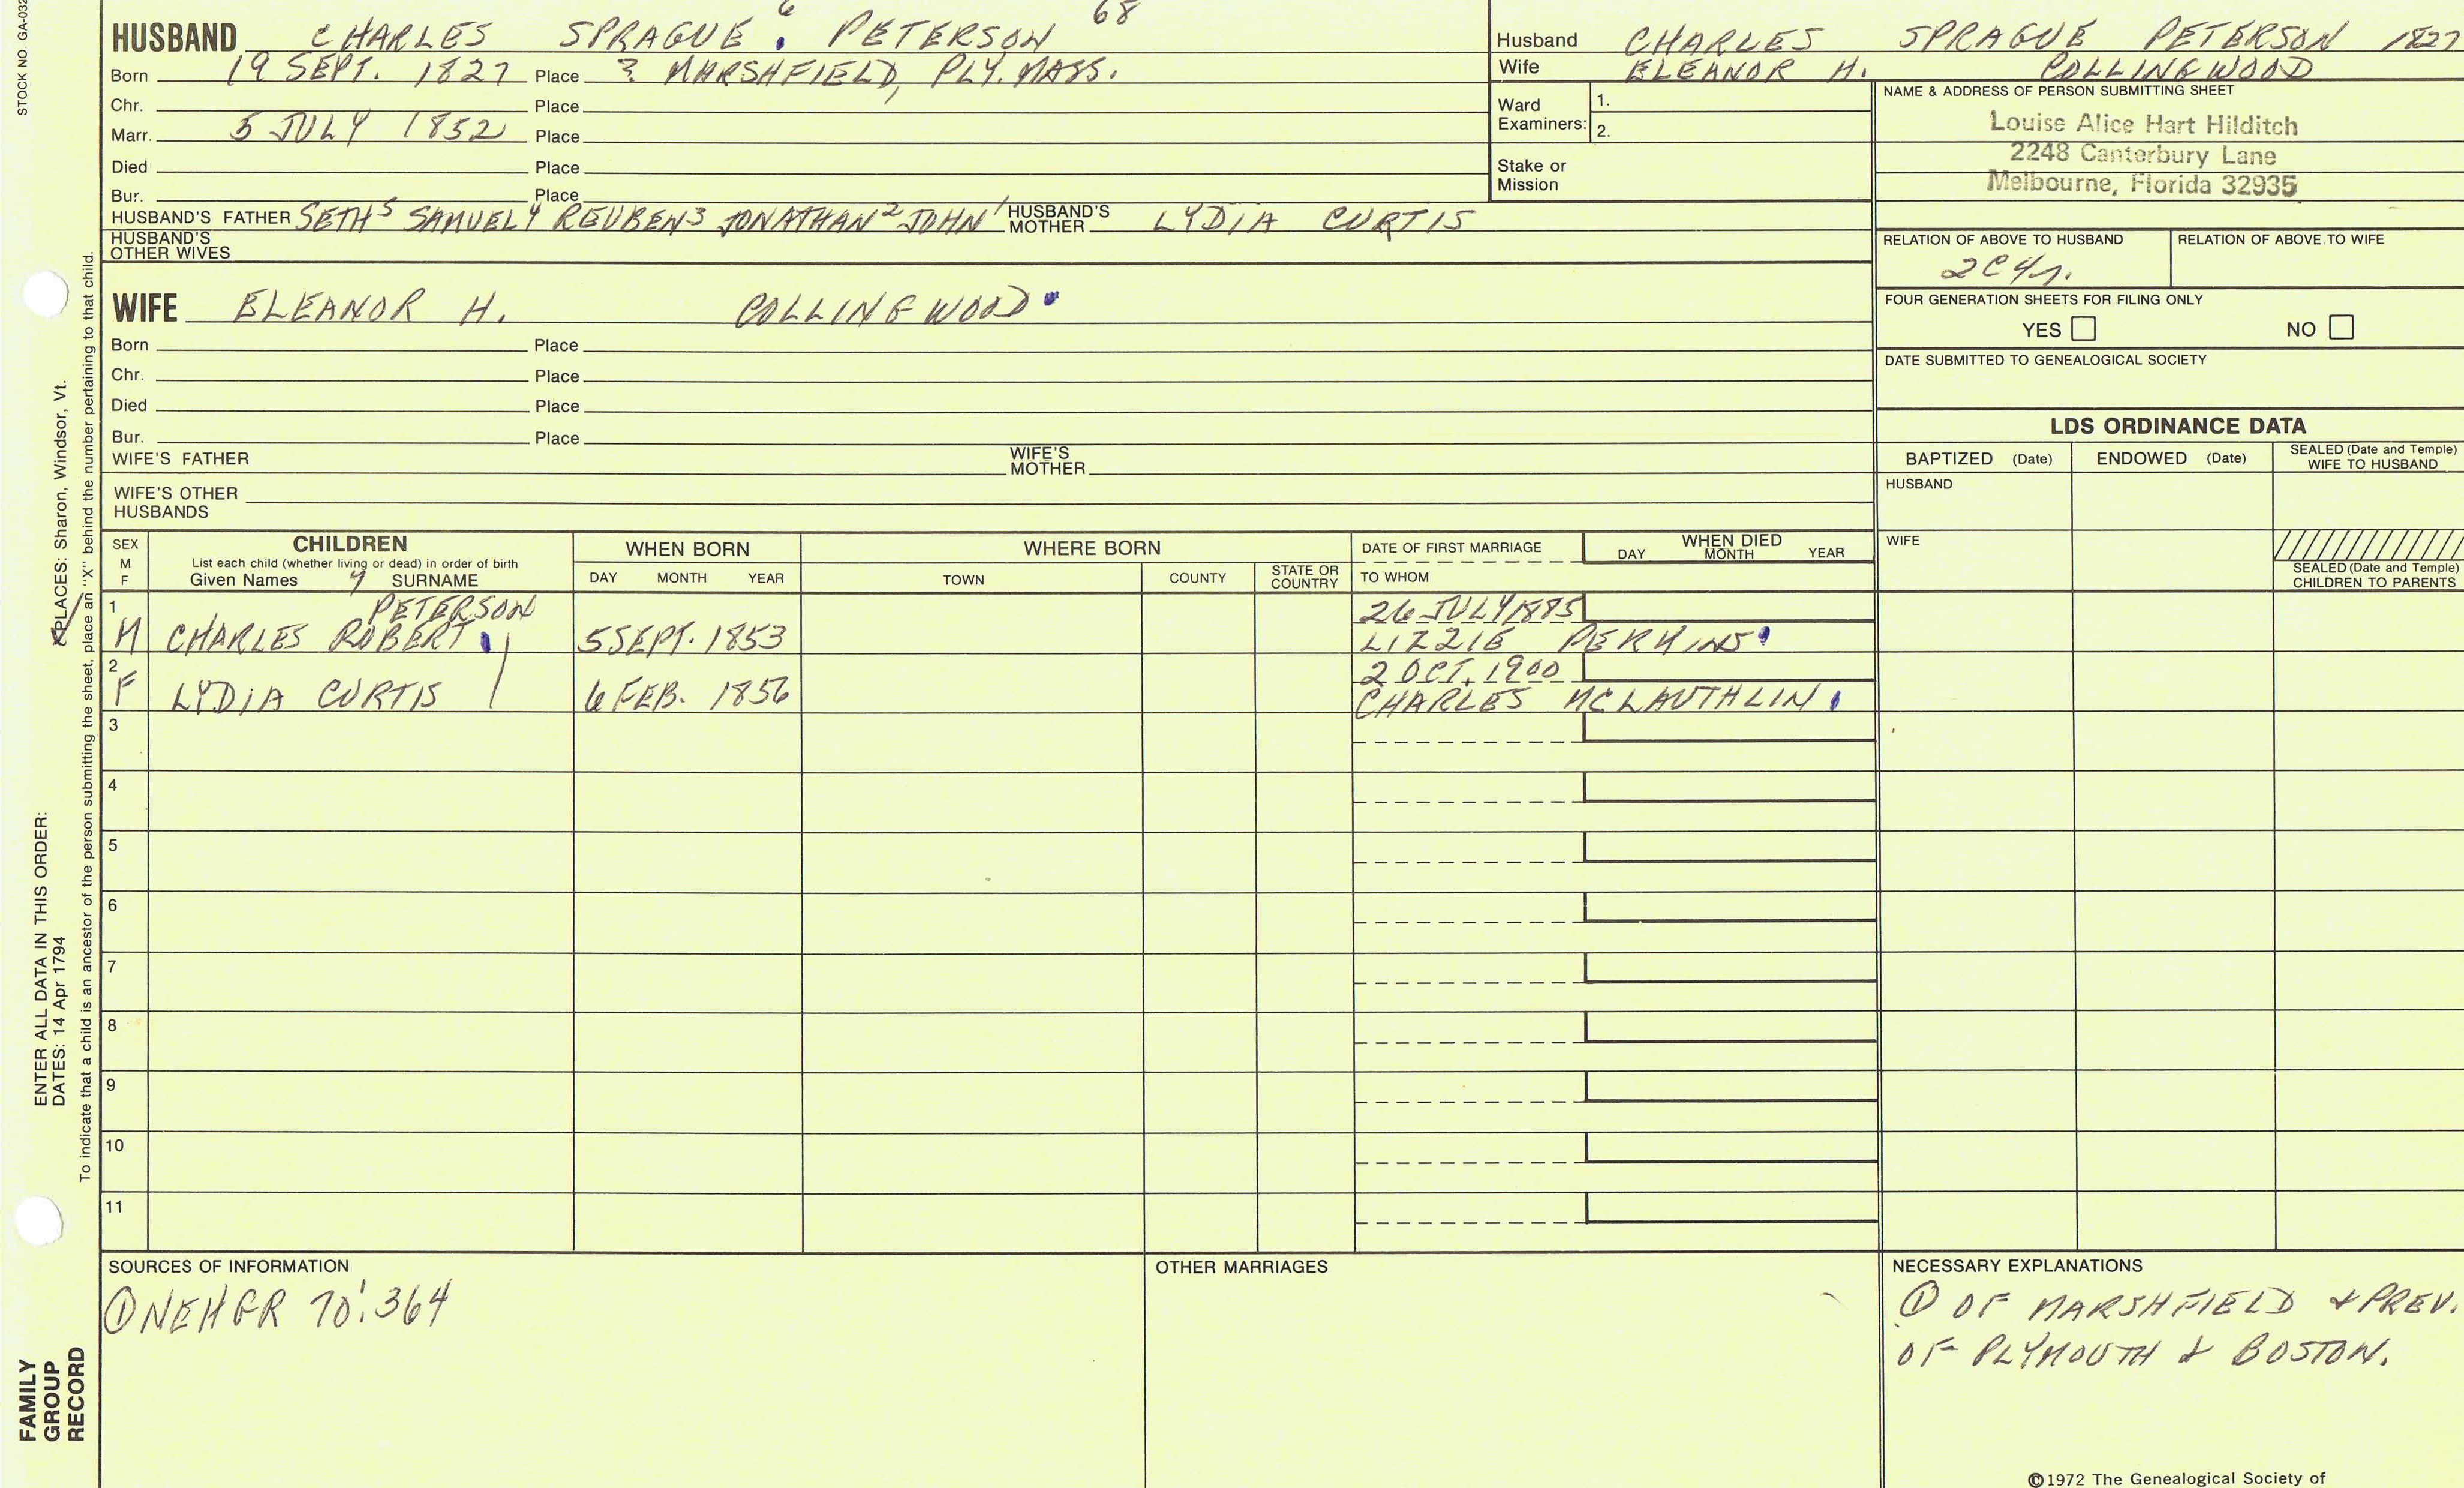 STOCK NO. GA-032
6 68
HUSBAND CHARLES SPRAGUE PETERSON
Born 19 SEPT. 1827 Place ? MARSHFIELD, PLY. MASS.
Chr. Place
Marr. 5 JULY 1852 Place
Died Place
Bur. Place
HUSBAND'S FATHER SETH5 SAMUEL4 REUBEN3 JONATHAN2 JOHN1 HUSBAND'S MOTHER LYDIA CURTIS
HUSBAND'S OTHER WIVES
WIFE ELEANOR H. COLLINGWOOD
Born Place
Chr. Place
Died Place
Bur. Place
WIFE'S FATHER WIFE'S MOTHER
WIFE'S OTHER HUSBANDS
Husband CHARLES SPRAGUE PETERSON 1827
Wife ELEANOR H. COLLINGWOOD
Ward Examiners: 1.
2.
Stake or Mission
NAME & ADDRESS OF PERSON SUBMITTING SHEET
Louise Alice Hart Hilditch
2248 Canterbury Lane
Melbourne, Florida 32935
RELATION OF ABOVE TO HUSBAND RELATION OF ABOVE TO WIFE
2C4r.
FOUR GENERATION SHEETS FOR FILING ONLY
YES NO
DATE SUBMITTED TO GENEALOGICAL SOCIETY
LDS ORDINANCE DATA
BAPTIZED (Date) ENDOWED (Date) SEALED (Date and Temple) WIFE TO HUSBAND
HUSBAND
WIFE
SEALED (Date and Temple) CHILDREN TO PARENTS
SEX M F
CHILDREN
List each child (whether living or dead) in order of birth
Given Names SURNAME
WHEN BORN
DAY MONTH YEAR
WHERE BORN
TOWN COUNTY STATE OR COUNTRY
DATE OF FIRST MARRIAGE
TO WHOM
WHEN DIED
DAY MONTH YEAR
1 PETERSON 26 JULY 1885
M CHARLES ROBERT 5 SEPT. 1853 LIZZIE PERKINS
2 2 OCT. 1900
F LYDIA CURTIS 6 FEB. 1856 CHARLES MCLAUTHLIN
3
4
5
6
7
8
9
10
11
SOURCES OF INFORMATION
① NEHGR 70:364
OTHER MARRIAGES
NECESSARY EXPLANATIONS
① OF MARSHFIELD & PREV.
OF PLYMOUTH & BOSTON.
©1972 The Genealogical Society of
PLACES: Sharon, Windsor, Vt.
ENTER ALL DATA IN THIS ORDER:
DATES: 14 Apr 1794
To indicate that a child is an ancestor of the person submitting the sheet, place an "X" behind the number pertaining to that child.
FAMILY
GROUP
RECORD